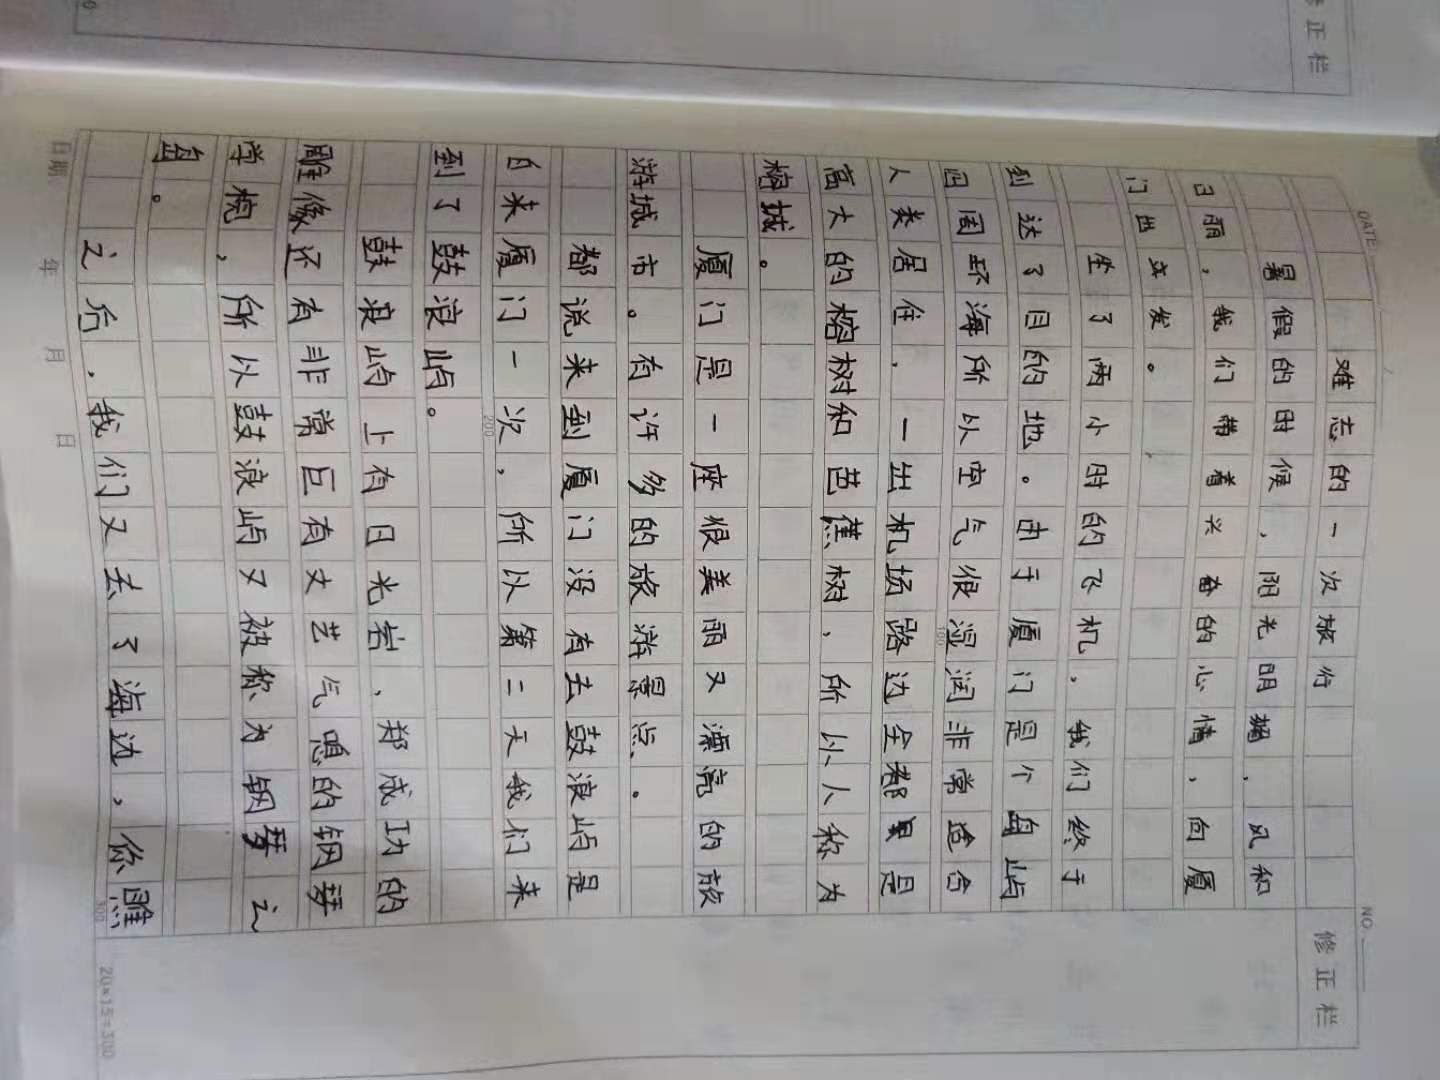 修正栏
DATE
NO.
修正栏
难忘的一次旅行
暑假的时候，阳光明媚，风和
日丽，我们带着兴奋的心情，向厦
门出发。
坐了两小时的飞机，我们终于
到达了目的地。由于厦门是个岛屿
四周环海所以空气很湿润非常适合
人类居住，一出机场路边全都是
高大的榕树和芭蕉树，所以人称为
榕城。
厦门是一座很美丽又漂亮的旅
游城市。有许多的旅游景点。
都说来到厦门没有去鼓浪屿是
白来厦门一次，所以第二天我们来
到了鼓浪屿。
鼓浪屿上有日光岩、郑成功的
雕像还有非常巨有文艺气息的钢琴
学校，所以鼓浪屿又被称为钢琴之
岛。
之后，我们又去了海边，你瞧
100
200
300
20×15=300
日期 年 月 日